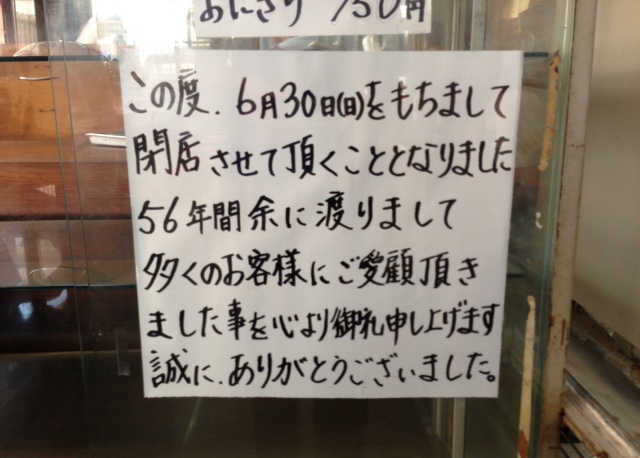 おにぎり 150円
この度、6月30日(日)をもちまして
閉店させて頂くこととなりました
56年間余に渡りまして
多くのお客様にご愛顧頂き
ました事を心より御礼申し上げます
誠に、ありがとうございました。